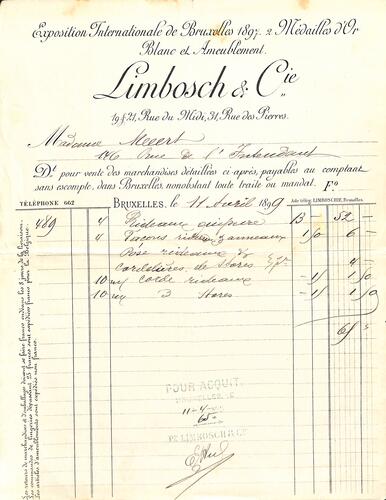 Exposition Internationale de Bruxelles 1897. 2 Médailles d'Or
Blanc et Ameublement.
Limbosch & Cie
19 & 21, Rue du Midi, 31, Rue des Pierres.
Madame Meert
146 rue de l'Intendant
Dt. pour vente des marchandises détaillées ci-après, payables au comptant
sans escompte, dans Bruxelles, nonobstant toute traite ou mandat. Fo
TÉLÉPHONE 662
BRUXELLES, le 11 Avril 1899
Adr. télégr. LIMBOSCHIE, Bruxelles.
489 4 Rideaux guipure 13 - 52 -
4 Façons rideaux anneaux 1 50 6 -
Pose rideaux &
cordelières, de stores 4 -
10 m corde rideaux - 15 1 50
10 m " 3 stores - 15 1 50
65 -
POUR ACQUIT
BRUXELLES, LE
11-4-
65-
Pr LIMBOSCH & Cie
Les retours de marchandises et d'emballage doivent se faire franco endéans les 8 jours de la livraison.
Les commandes de lingeries dépassant 25 francs sont expédiées franco pour la Belgique.
Les articles d'ameublements sont expédiés non franco.